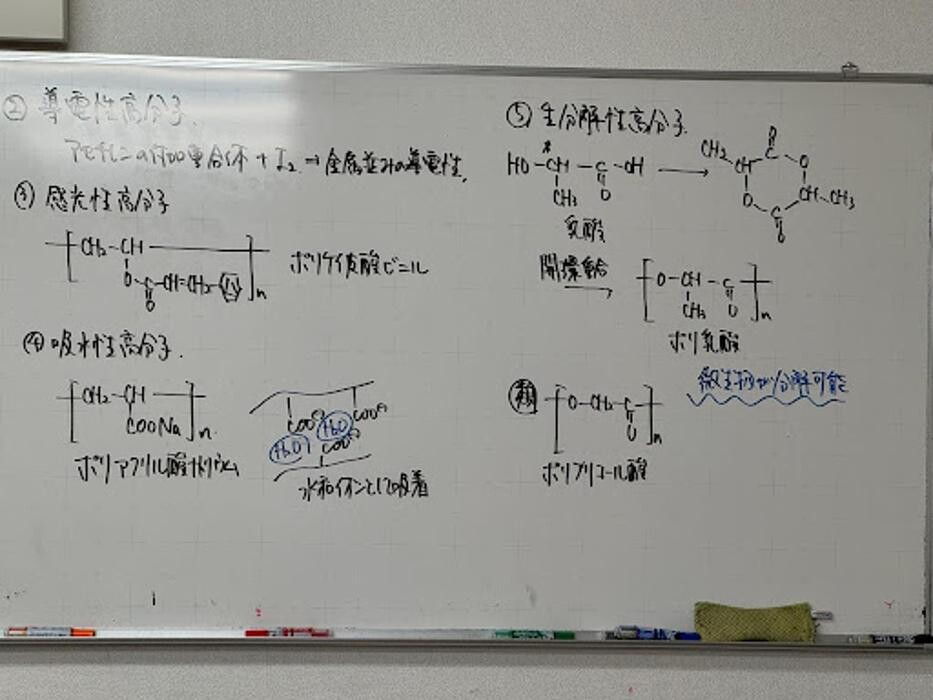 ② 導電性高分子.
アセチレンの付加重合体 + I₂ → 金属並みの導電性.
③ 感光性高分子
[CH₂-CH]n
O-C-CH=CH₂-
O
ポリケイ皮酸ビニル
④ 吸水性高分子.
[CH₂-CH]n
COONa
ポリアクリル酸ナトリウム
COO⊖ COO⊖
H₂O H₂O
COO⊖
水和イオンとして吸着
⑤ 生分解性高分子.
HO-*CH-C-OH →
CH₃ O
乳酸
CH₃ CH C O
O
O C CH-CH₃
O
開環重合 →
[O-CH-C]n
CH₃ O
ポリ乳酸
微生物が分解可能
類 [O-CH₂-C]n
O
ポリグリコール酸